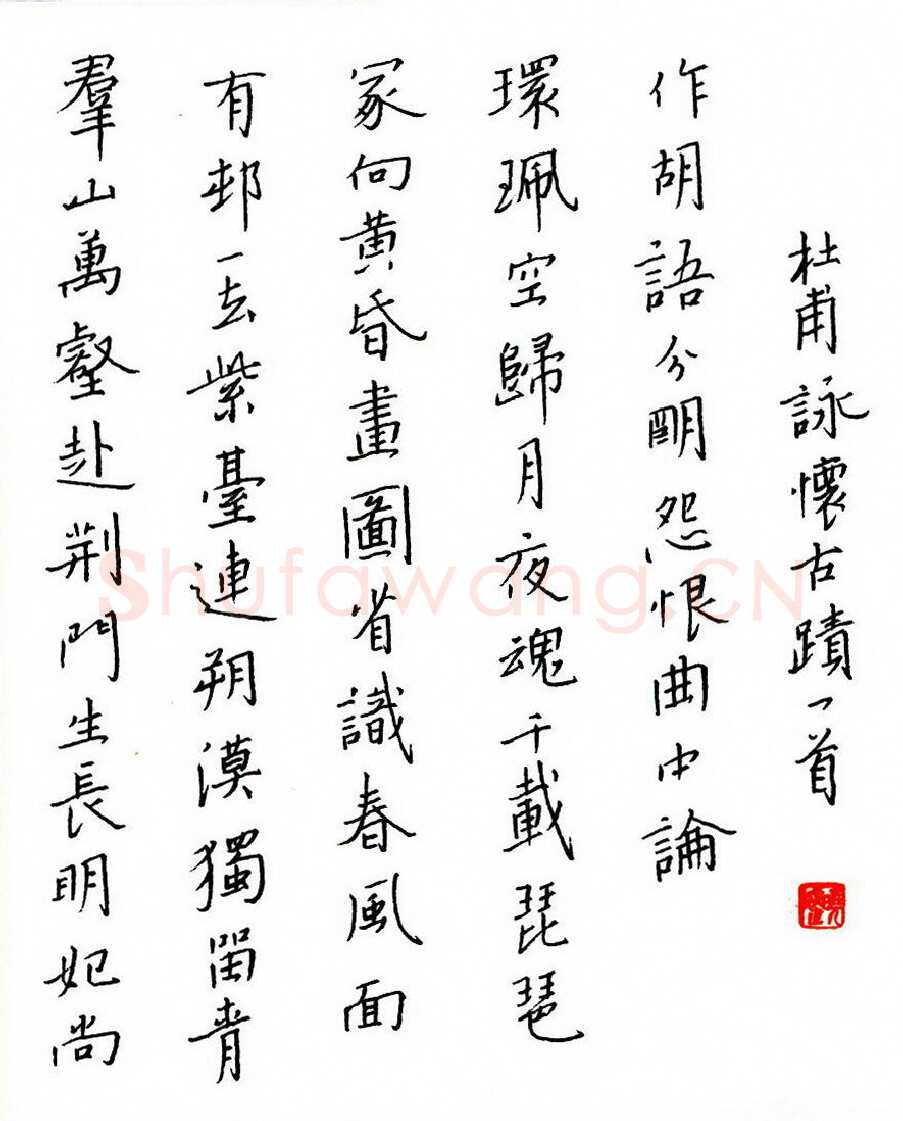 羣山萬壑赴荆門生長明妃尚
有邨一去紫臺連朔漠獨留青
冢向黄昏畫圖省識春風面
環珮空歸月夜魂千載琵琶
作胡語分明怨恨曲中論
杜甫詠懷古蹟一首
Shufawang.CN